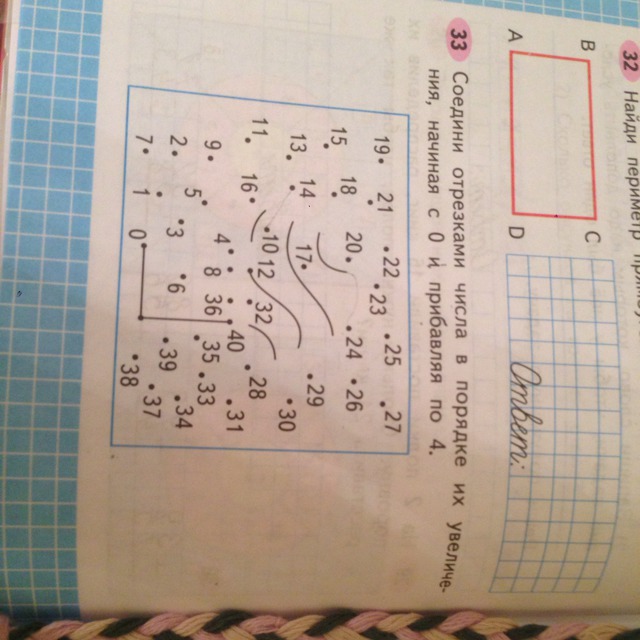 32 Найди периметр
B C
A D
Ответ:
33 Соедини отрезками числа в порядке их увеличе-
ния, начиная с 0 и прибавляя по 4.
19 21 22 23 25 27
15 18 20 24 26
13 14 17 29 30
11 16 10 12 32 28
9 5 4 8 36 40 35 33 31
2 3 6 39 34
7 1 0 38 37